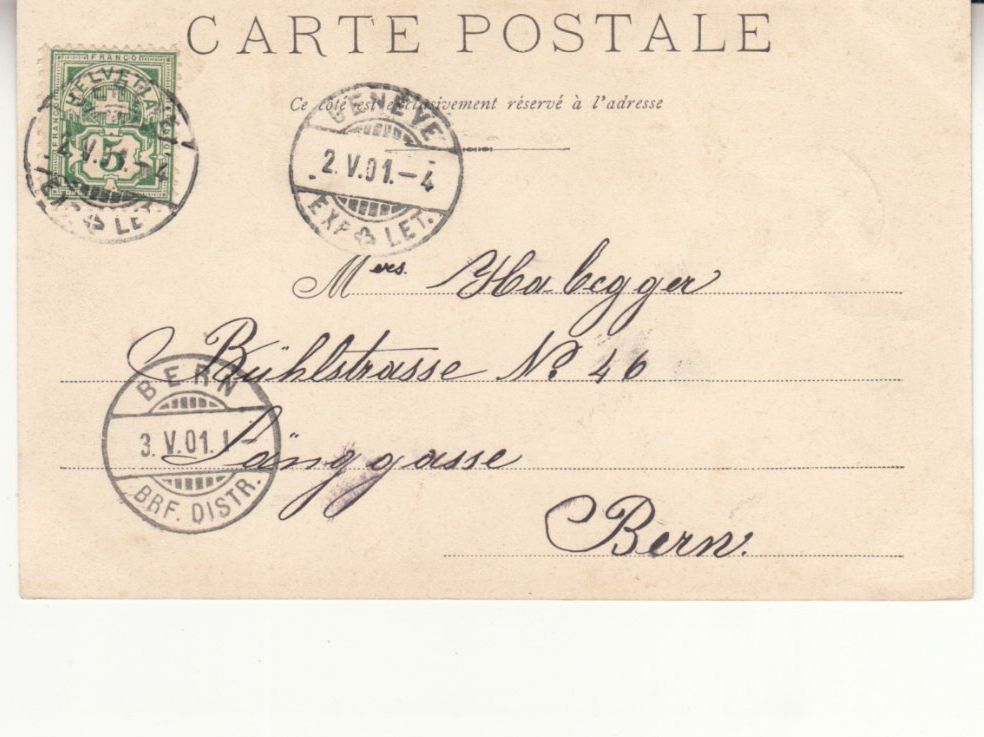 CARTE POSTALE
Ce côté est exclusivement réservé à l'adresse
FRANCO
HELVETIA
5
2.V.01.-4
EXP. LET.
GENÈVE
2.V.01.-4
EXP. LET.
Mers. Habegger
Bühlstrasse No. 46
Länggasse
Bern.
BERN
3.V.01.1-
BRF. DISTR.